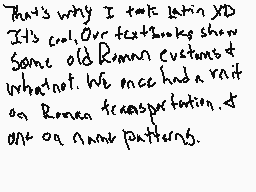 That's why I took latin XD
It's cool, Our textbooks show
some old Roman customs &
whatnot. We once had a unit
on Roman transportation. &
one on name patterns.